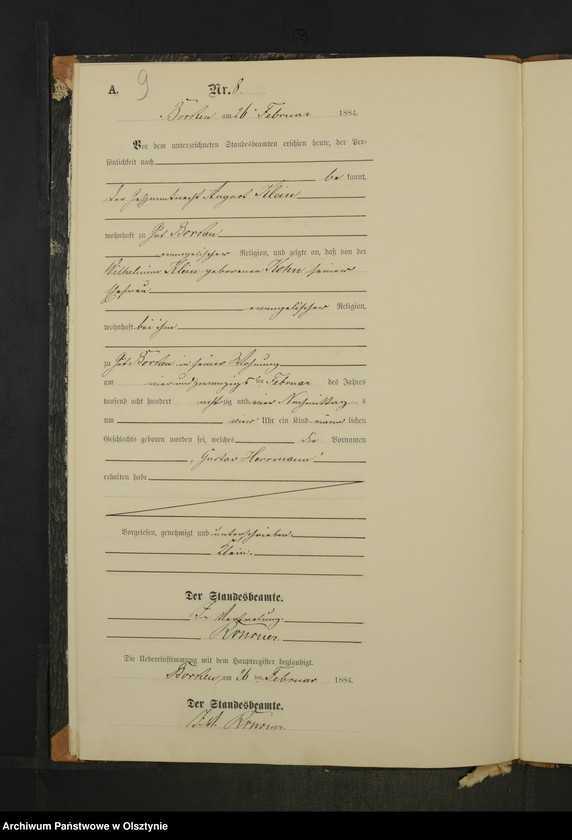 A. 9 Nr. 8.
Borken am 26. Februar 1884.
Vor dem unterzeichneten Standesbeamten erschien heute, der Per-
sönlichkeit nach
be kannt,
der August Klein
wohnhaft zu Gut Borken
evangelischer Religion, und zeigte an, daß von der
Wilhelmine Klein geborenen Kohn seiner
Ehefrau
evangelischer Religion,
wohnhaft bei ihm
zu Gut Borken in seiner Wohnung
am vierundzwanzigsten Februar des Jahres
tausend acht hundert acht zig und vier Nachmittag s
um vier Uhr ein Kind männ lichen
Geschlechts geboren worden sei, welches die Vornamen
„Gustav Herrmann“
erhalten habe
Vorgelesen, genehmigt und unterschrieben
Klein.
Der Standesbeamte.
In Vertretung.
Die Uebereinstimmung mit dem Hauptregister beglaubigt.
Borken, am 26 ten Februar 1884.
Der Standesbeamte.
Archiwum Państwowe w Olsztynie